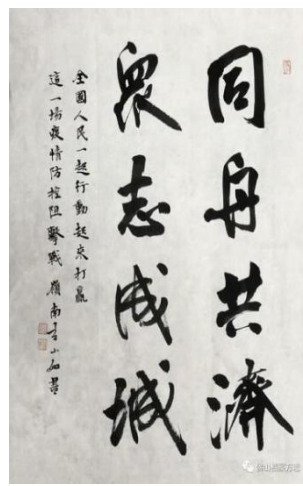 同舟共濟
眾志成城
全國人民一起行動起來打贏
這一場疫情防控阻擊戰 嶺南